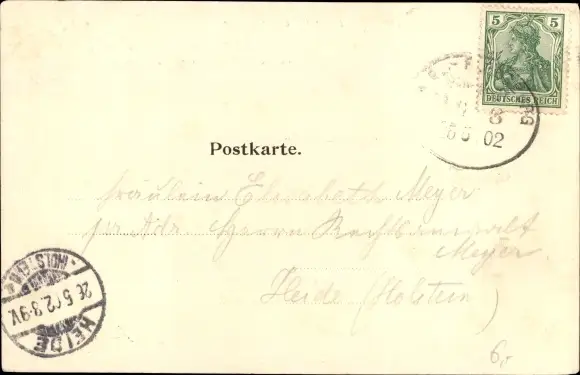 5 5
DEUTSCHES REICH
02
Postkarte.
Fräulein Elisabeth Meyer
per Adr Herrn Rechtsanwalt
Meyer
Heide (Holstein)
HEIDE
(HOLSTEIN)
26.5.02.8-9V.